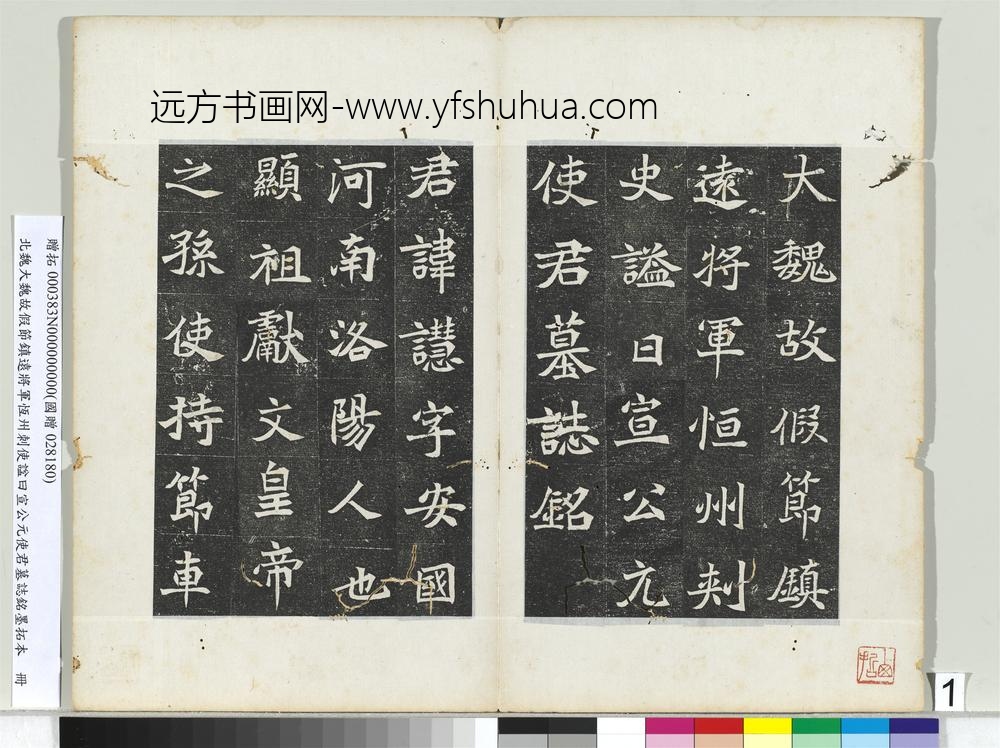 远方书画网-www.yfshuhua.com
大魏故假節鎮
遠將軍恒州刾
史謚曰宣公元
使君墓誌銘
君諱譿字安國
河南洛陽人也
顯祖獻文皇帝
之孫使持節車
贈拓 000383N000000000(國贈 028180)
北魏大魏故假節鎮遠將軍恆州刺使諡曰宣公元使君墓誌銘墨拓本 冊
1